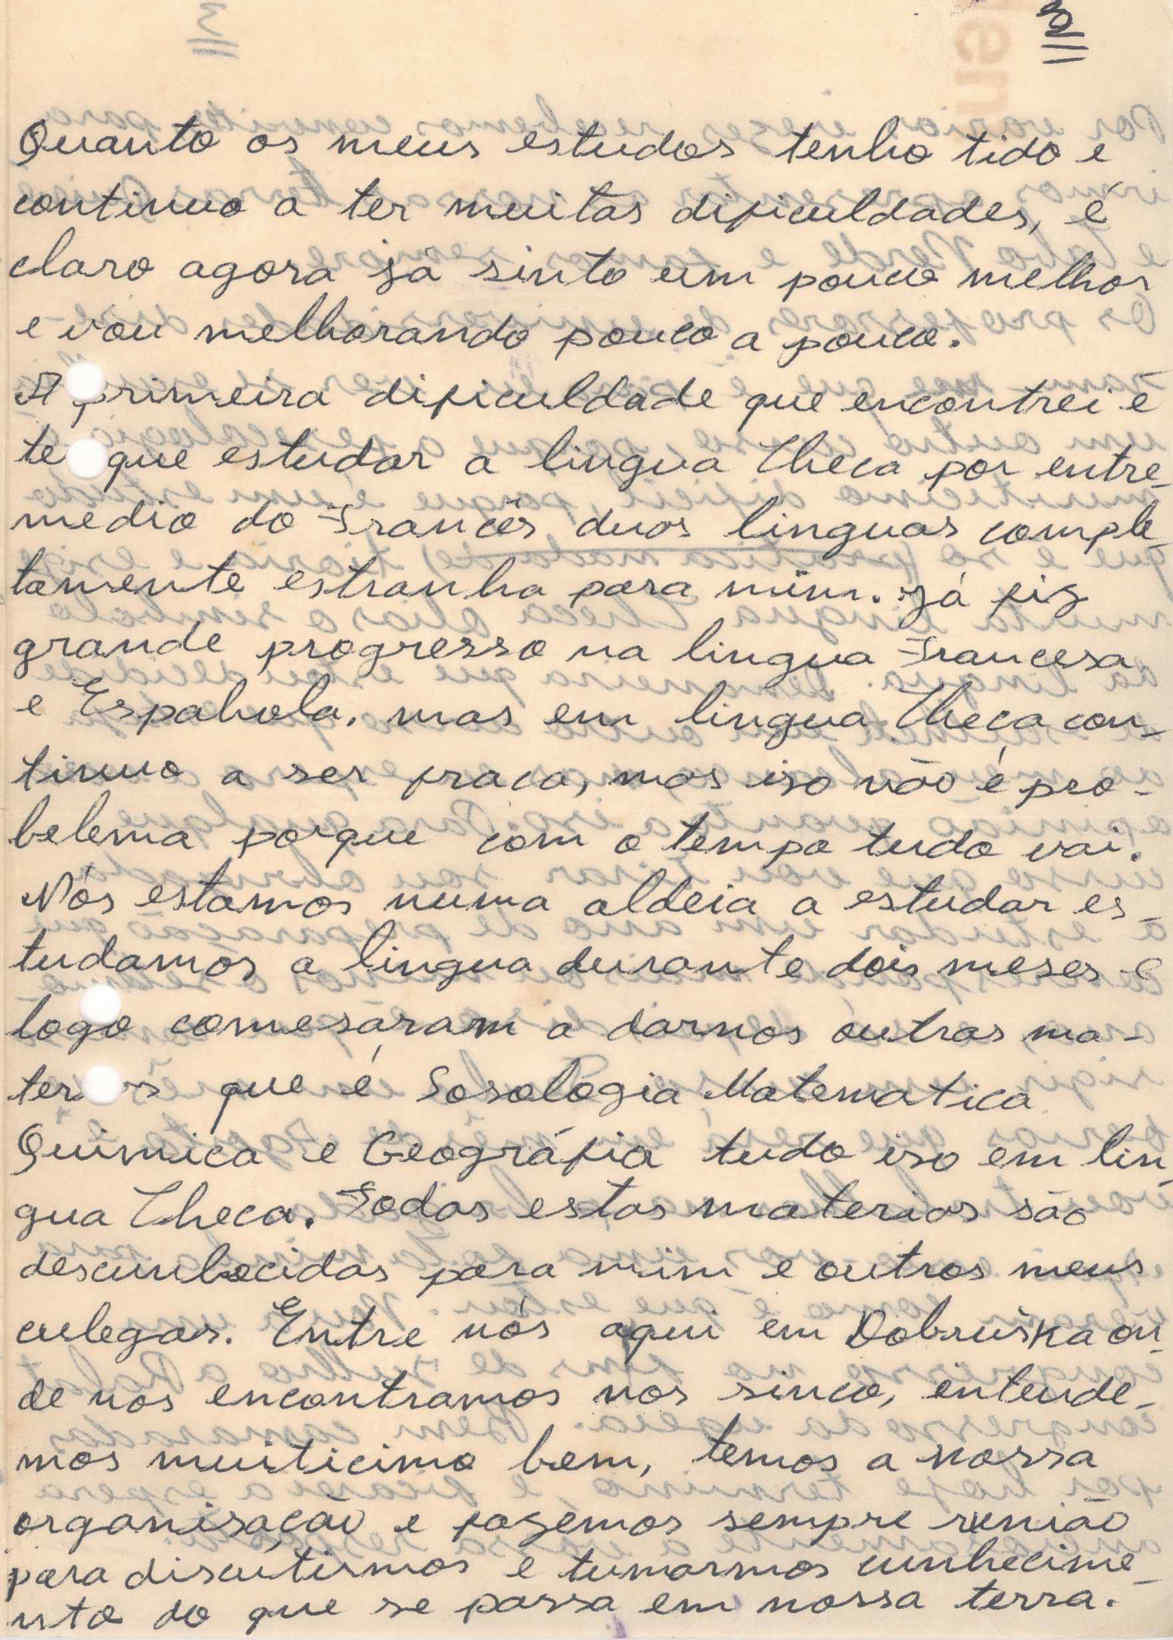 3
Quanto os meus estudos tenho tido e
continuo a ter muitas dificuldades, é
claro agora já sinto um pouco melhor
e vou melhorando pouco a pouco.
A primeira dificuldade que encontrei é
te que estudar a lingua Checa por entre-
medio do Francês duas linguas comple-
tamente estranha para mim. Já fiz
grande progresso na lingua Francesa
e Espahola. mas em lingua Checa con-
tinuo a ser fraca, mas iso não é pro-
belema porque com o tempo tudo vai.
Nós estamos numa aldeia a estudar es-
tudamos a lingua durante dois meses e
logo comesáram a darnos outras ma-
ter s que é Sosologia Matematica
Quimica e Geográfia tudo iso em lin
gua Checa. Todas estas materias são
descunhecidas para mim e outros meus
culegas. Entre nós aqui em Dobruška on-
de nos encontramos nos sinco, entende-
mos muiticimo bem, temos a nossa
organisação e fazemos sempre runião
para discutirmos e tumarmos cunhecime-
nto do que se passa em nossa terra.